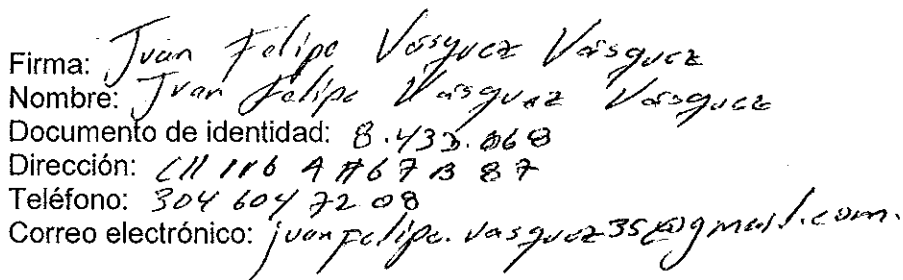 Firma: Juan Felipe Vásquez Vásquez
Nombre: Juan Felipe Vasquez Vásquez
Documento de identidad: 8.433.068
Dirección: Cll 116 A #67 B 87
Teléfono: 304 604 72 08
Correo electrónico: juanfelipe.vasquez35@gmail.com.